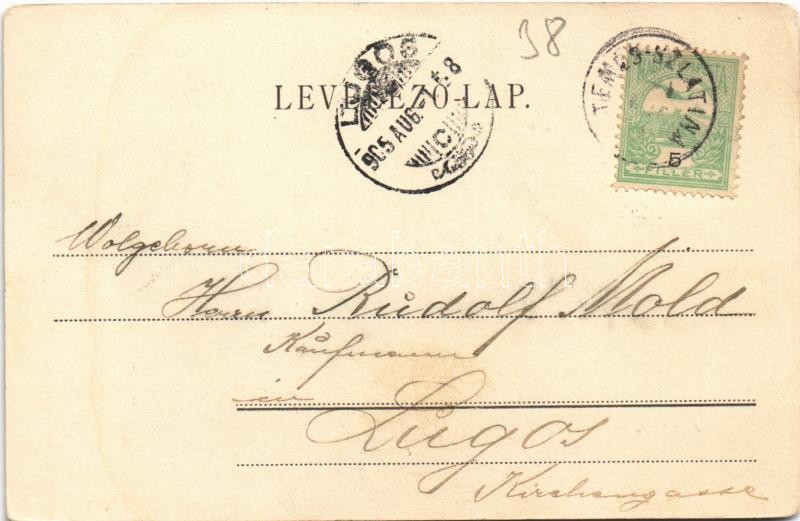 38
LEVELEZŐ-LAP.
LUGOS
905 AUG. 7
TEMES-SZLATINA
5
FILLER
darabanth
Wolgeborn
Herrn Rudolf Mold
Kaufmann
in
Lugos
Kirchengasse